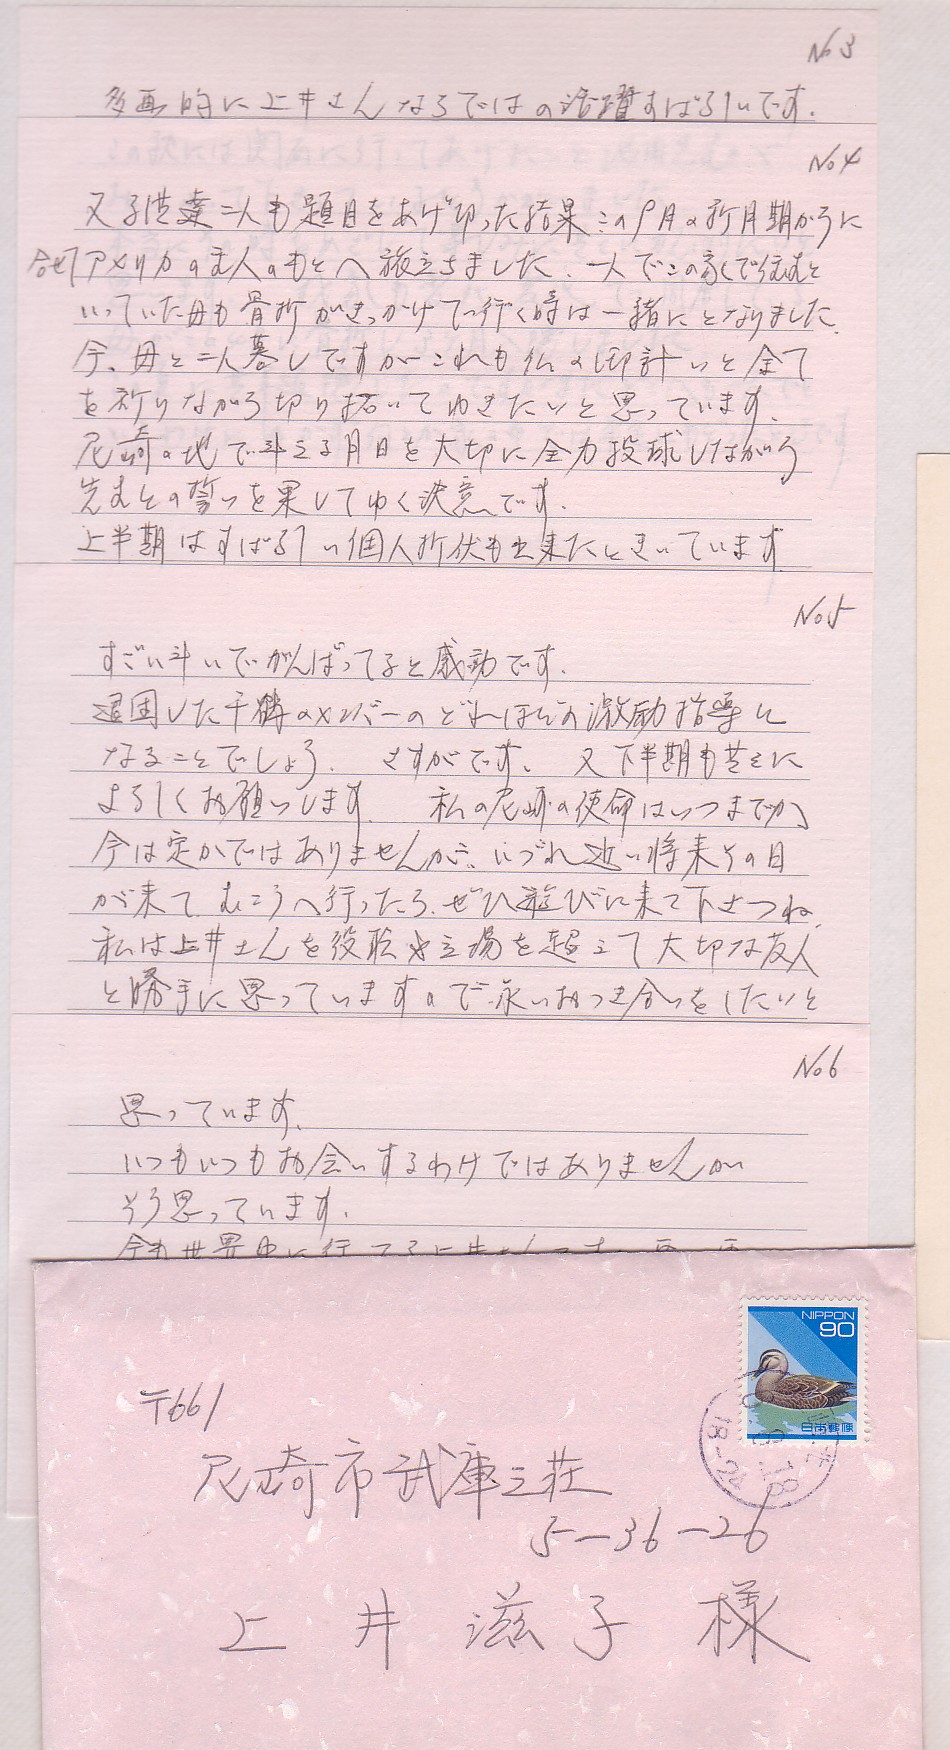 No3
多面的に上井さんならではの活躍すばらしいです.
No4
又子供達二人も題目をあげ切った結果この9月の新月期からに
合せアメリカの主人のもとへ旅立ちました. 一人でこの家で住むと
いっていた母も骨折がきっかけで行く時は一緒にとなりました.
今、母と二人暮しですがこれも仏の御計いと全て
を祈りながら切り拓いてゆきたいと思っています.
尼崎の地で斗える月日を大切に全力投球しながら
先生との誓いを果してゆく決意です.
上半期はすばらしい個人折伏も出来たときいています.
No5
すごい斗いでがんばってると感動です.
退園した千鶴のメンバーのどれほどの激励指導に
なることでしょう. さすがです. 又下半期も共に
よろしくお願いします. 私の尼崎の使命はいつまでか
今は定かではありませんが、いづれ近い将来その日
が来て むこうへ行ったら、ぜひ遊びに来て下さいね.
私は上井さんを役職や立場を超えて大切な友人
と勝手に思っていますので、永いおつき合いをしたいと
No6
思っています.
いつもいつもお会いするわけではありませんが
そう思っています.
NIPPON
90
日本郵便
〒661
尼崎市武庫之荘
5-36-26
上井滋子様